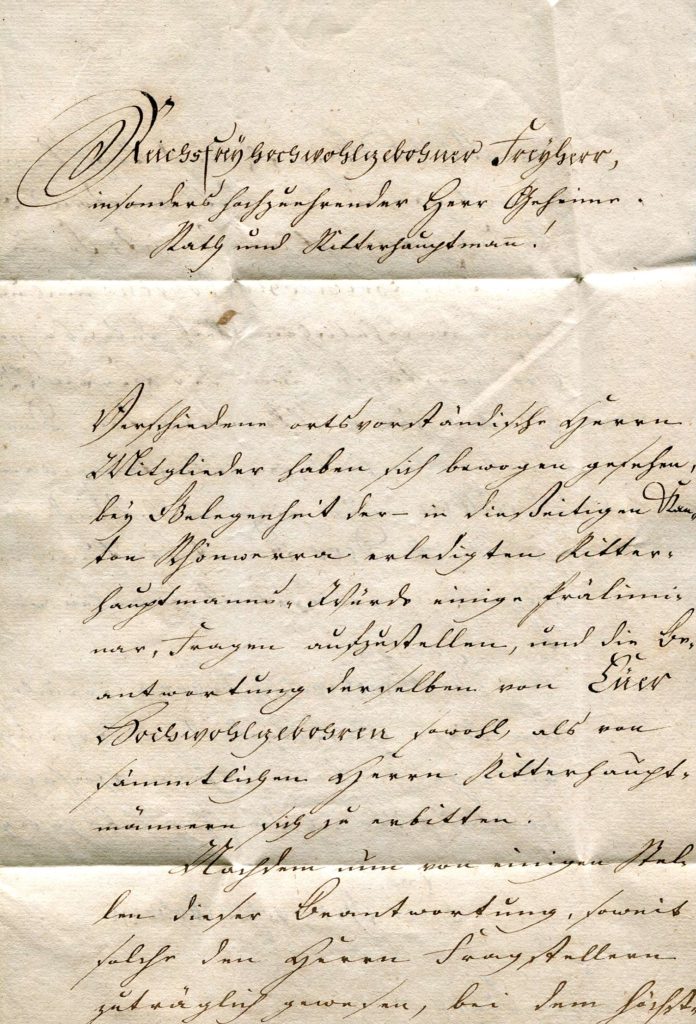 Reichsfreyhochwohlgebohner Freyherr,
insonders hochzuehrender Herr Geheime-
Rath und Ritterhauptmann!
Verschiedene ortsvorständische Herrn
Mitglieder haben sich bewogen gesehen,
bey Gelegenheit der in dießeitigen Kan-
ton Rhönwerra erledigten Ritter-
hauptmanns-Würde einige Prälimi-
nar-Fragen aufzustellen, und die Be-
antwortung derselben von Eüer
Hochwohlgebohren sowohl, als von
sämmtlichen Herrn Ritterhaupt-
männern sich zu erbitten.
Nachdem nun von einigen Stel-
len dieser Beantwortung, soweit
solche den Herrn Fragstellern
zuträglich gewesen, bei dem höchst-